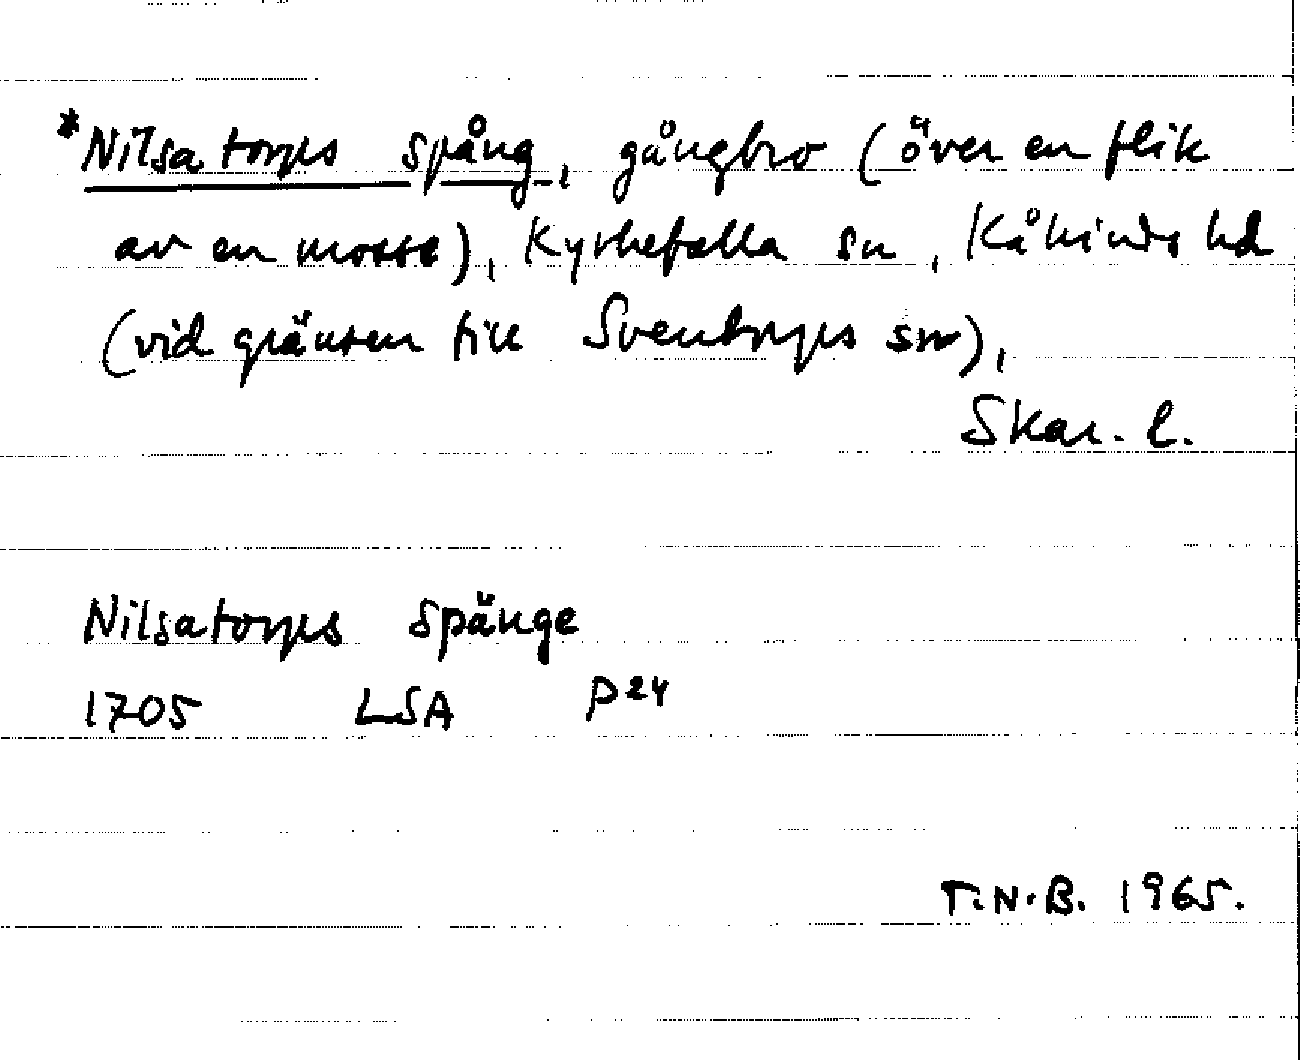 *Nilsatorps spång, gångbro (över en flik
av en mosse), Kyrkefalla sn, Kåkinds hd
(vid gränsen till Sventorps sn),
Skar. l.
Nilsatorps Spänge
1705 LSA P24
T.N.B. 1965.